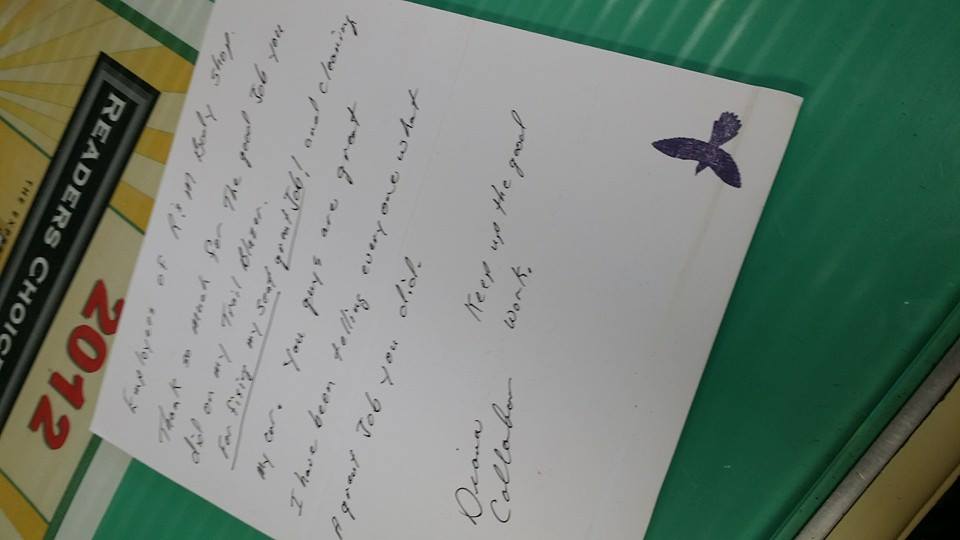 Employees of R & M Body Shop
Thank so much for The good Job you
did on my Trail Blazer.
For fixing my Seat great Job, and cleaning
my car. You guys are great
I have been telling everyone what
A great Job you did.
Keep up the good
work.
Diana
READERS CHOICE
2012